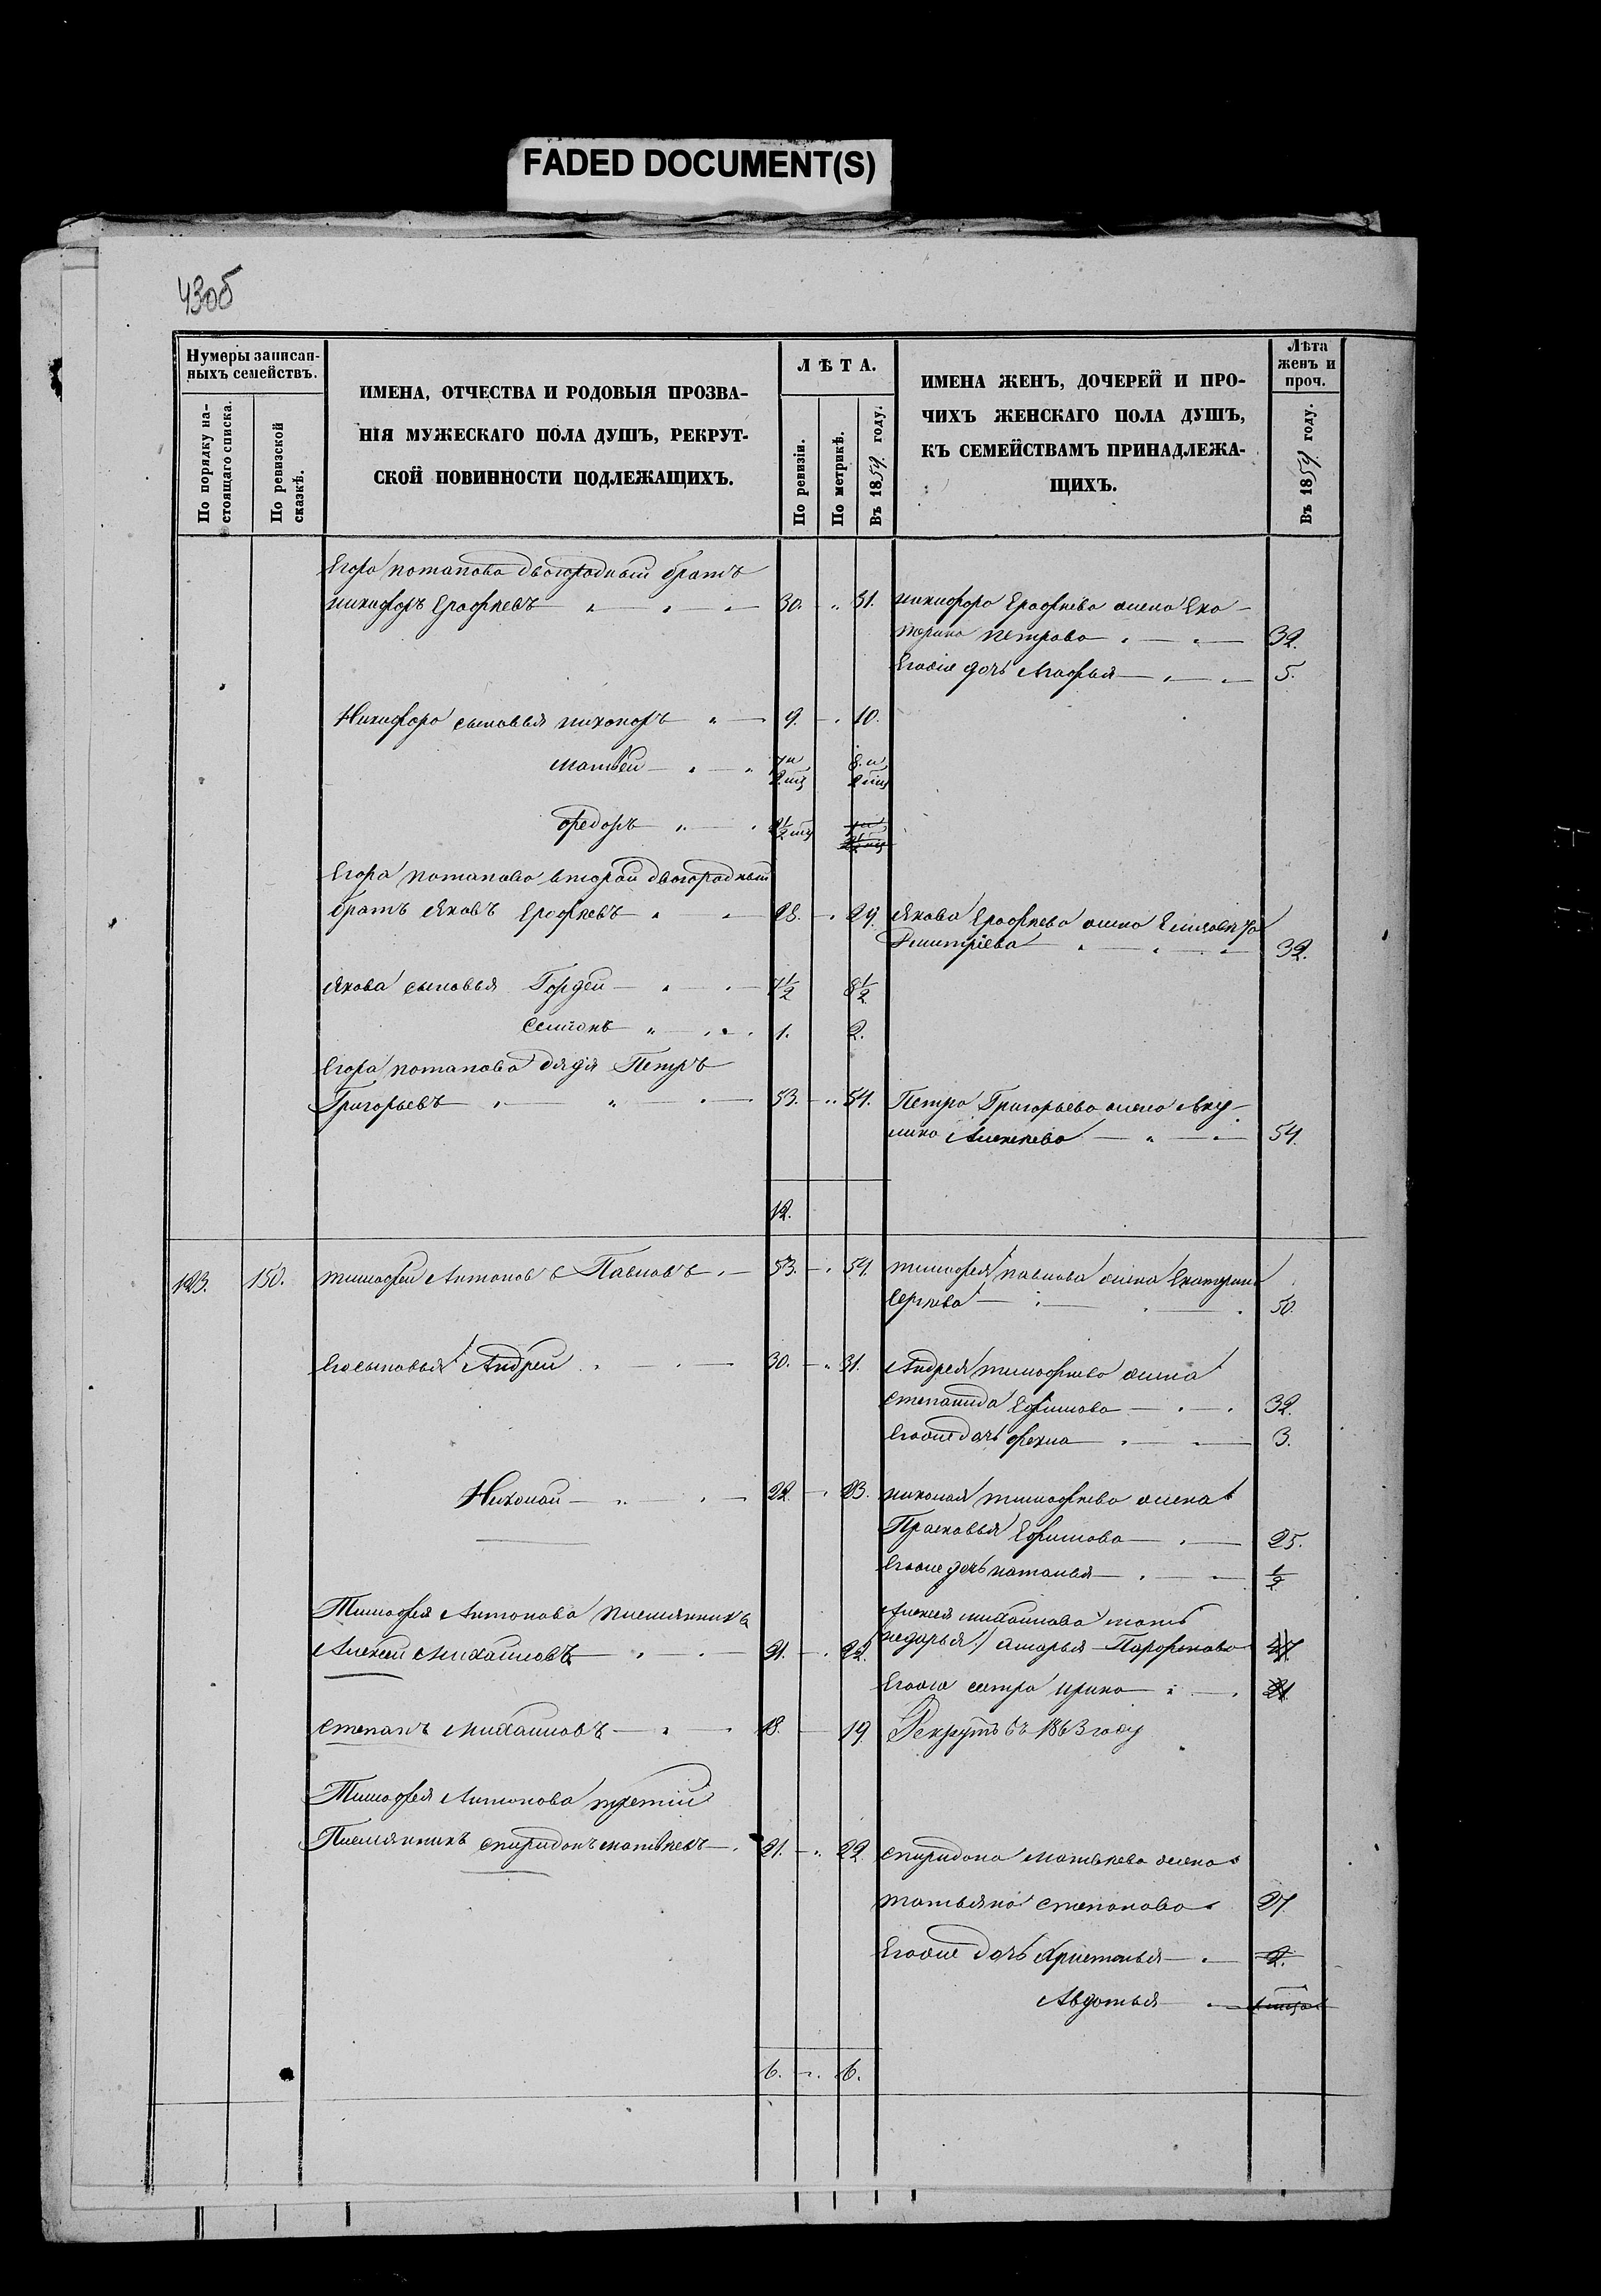 FADED DOCUMENT(S)
430б
Нумеры записан-
ныхъ семействъ.
По порядку на-
стоящаго списка.
По ревизской
сказкѣ.
ИМЕНА, ОТЧЕСТВА И РОДОВЫЯ ПРОЗВА-
НІЯ МУЖЕСКАГО ПОЛА ДУШЪ, РЕКРУТ-
СКОЙ ПОВИННОСТИ ПОДЛЕЖАЩИХЪ.
ЛѢТА.
По ревизіи.
По метрикѣ.
Въ 1859 году.
ИМЕНА ЖЕНЪ, ДОЧЕРЕЙ И ПРО-
ЧИХЪ ЖЕНСКАГО ПОЛА ДУШЪ,
КЪ СЕМЕЙСТВАМЪ ПРИНАДЛЕЖА-
ЩИХЪ.
Лѣта
женъ и
проч.
Въ 1859 году.
Егора потапова двоюродный братъ
никифоръ Ерофѣевъ 30. 31. никифора Ерофѣева жена Ека-
терина петрова 32.
Егоже дочь Агафья 5.
Никифора сыновья никоноръ 9. 10.
матвей 7 и 8. и
2 мц 2 мц
федоръ 2½ мц
Егора потапова второй двоюродный
братъ Яковъ Ерофѣевъ 28. 29. Якова Ерофѣева жена Елизавѣта
Дмитріева 32.
Якова сыновья Гордей 7½ 8½
Семіонъ 1. 2.
Егора потапова дядя Петръ
Григорьевъ 53. 54. Петра Григорьева жена Аку-
лина Алексѣева 54.
12.
123. 150. тимофей Антоновъ Павловъ 53. 54. тимофея павлова жена Екатерина
Сергѣева 50.
Его сыновья Андрей 30. 31. Андрея тимофѣева жена
степанида Ефимова 32.
Егоже дочь фекла 3.
Николай 22. 23. николая тимофѣева жена
Прасковья Ефимова 25.
Егоже дочь наталья ½
Тимофея Антонова племянникъ
Алексей михайловъ 21. 22. Алексея михайлова мать
Дарья Парфенова
Егоже сестра ирина 21
степанъ михайловъ 18. 19. Рекрутъ въ 1863 году
Тимофея Антонова третій
Племянникъ спиридонъ матвѣевъ 21. 22. спиридона матвѣева жена
татьяна степанова 27.
Егоже дочь Христинья 2.
Авдотья
6. 6.